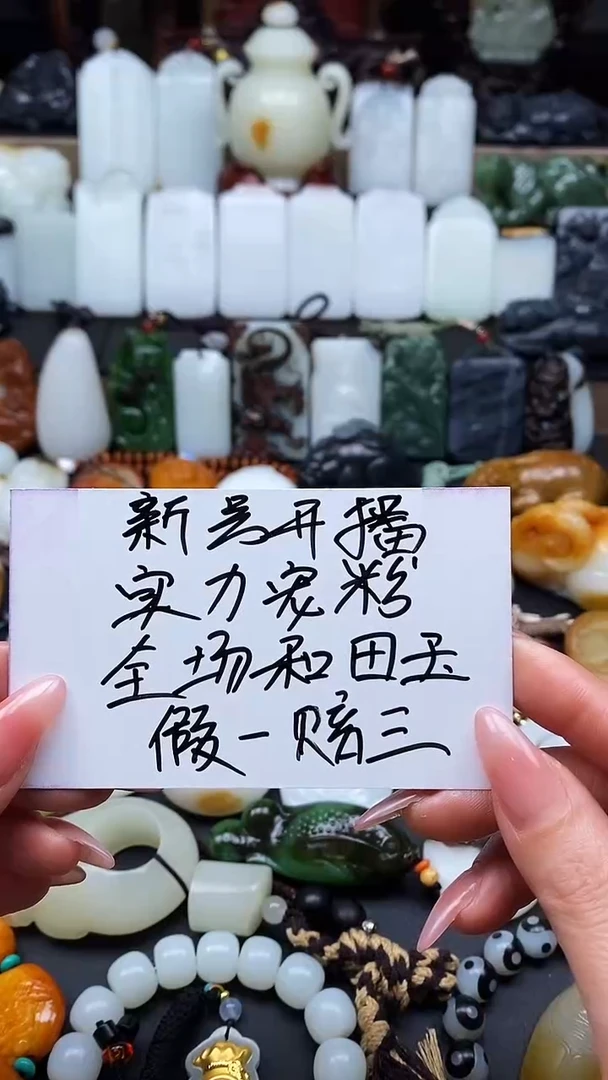 新号开播
实力宠粉
全场和田玉
假一赔三